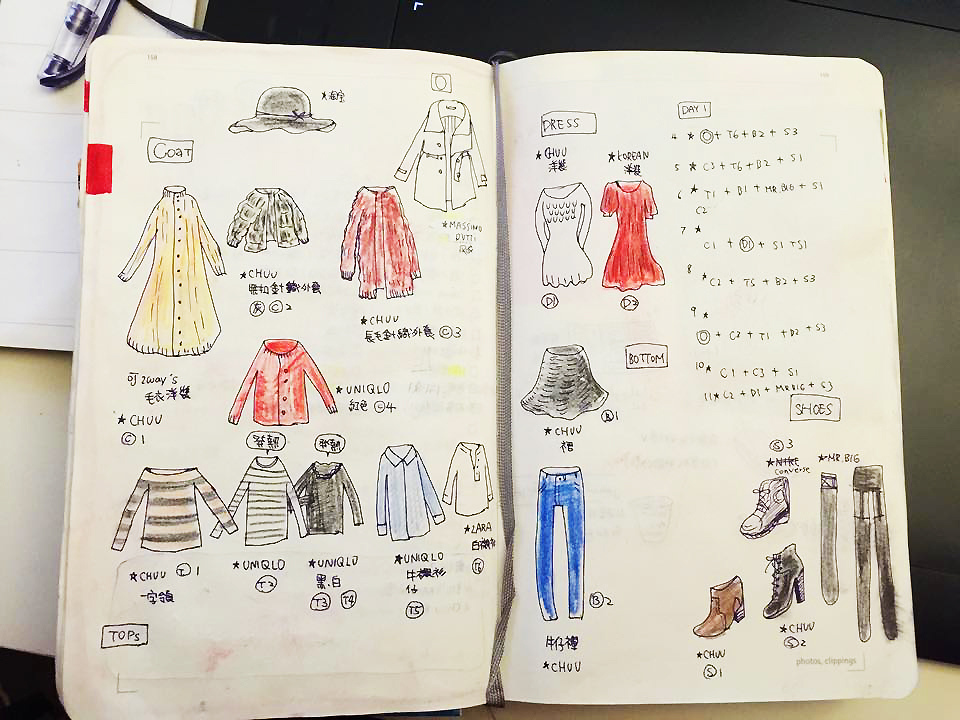 158
★淘宝
O
COAT
★MASSIMO
DUTTI
風衣
★CHUU
環扣針織外套
灰 C2
★CHUU
長毛針織外套 C3
可2way's
毛衣洋裝
★CHUU
C1
★UNIQLO
紅色 C4
發熱
發熱
★CHUU T1
一字領
★UNIQLO
T2
★UNIQLO
黑.白
T3 T4
★UNIQLO
牛襯衫
仔
T5
★ZARA
白襯衫
T6
TOPS
159
DRESS
★CHUU
洋裝
★KOREAN
洋裝
D1
D2
BOTTOM
B1
★CHUU
裙
B2
牛仔褲
★CHUU
DAY 1
4 ★ O + T6 + B2 + S3
5 ★ C3 + T6 + B2 + S1
6 ★ T1 + B1 + MR.BIG + S1
C2
7 ★
C1 + D1 + S1 TS1
8 ★
C2 + T5 + B2 + S3
9 ★
O + C3 + T1 + B2 + S3
10 ★ C1 + C3 + S1
11 ★ C2 + D1 + MR.BIG + S3
SHOES
S3
★NIKE
converse
★MR.BIG
★CHUU
S2
★CHUU
S1
photos, clippings